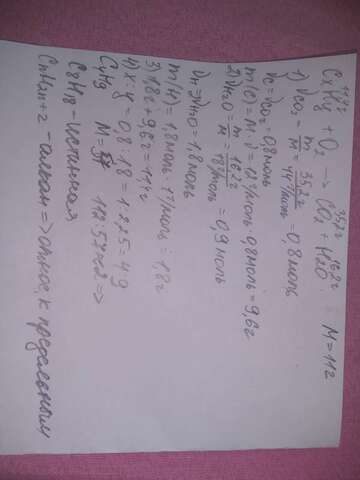 11,4г 35,2г 16,2г
CxHy + O2 → CO2 + H2O M=112
1) νCO2 = m/M = 35,2г/44г/моль = 0,8 моль
νC = νCO2 = 0,8 моль
m(C) = M·ν = 12г/моль · 0,8 моль = 9,6г
2) νH2O = m/M = 16,2г/18г/моль = 0,9 моль
νH = 2νH2O = 1,8 моль
m(H) = 1,8 моль · 1г/моль = 1,8г
3) 1,8г + 9,6г = 11,4г
4) x:y = 0,8:1,8 = 1:2,25 = 4:9
C4H9 M=57 112:57≈2 =>
C8H18 - истинная
CnH2n+2 - алкан => относ. к предельным